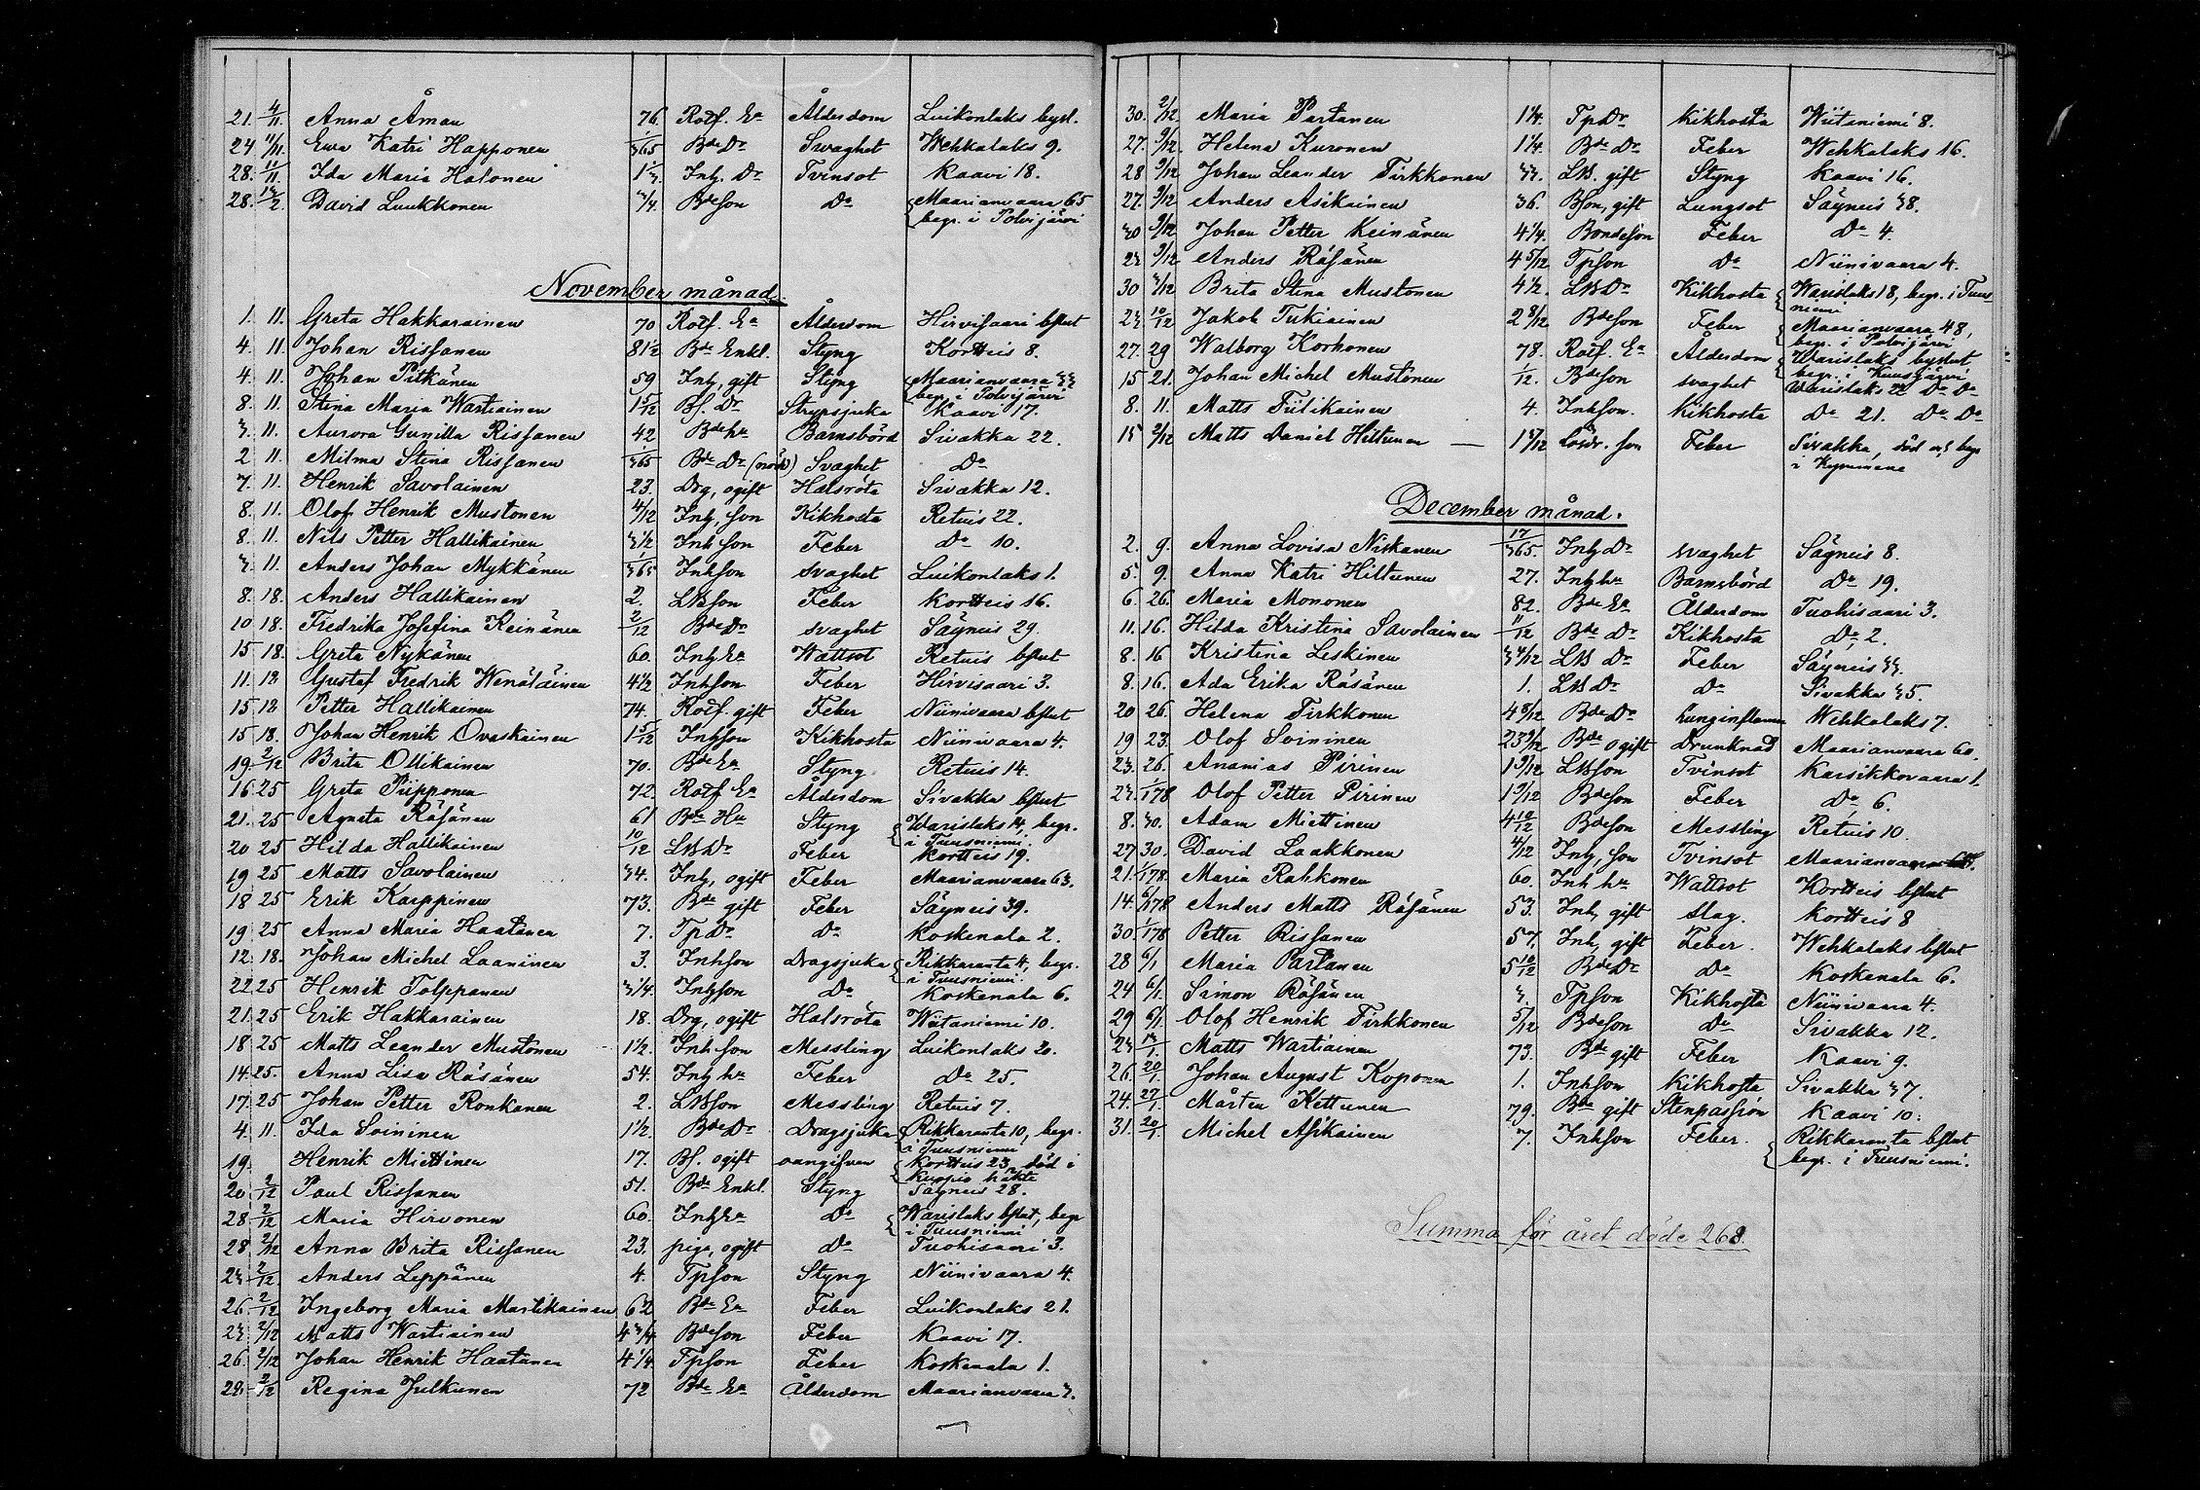 21. 4/11. Anna Åman 76 Rotf. Ea Ålderdom Luikonlaks bysl.
24 11/11. Ewa Katri Happonen 1/365 Bde Dr Swaghet Wehkalaks 9.
28. 11/11 Ida Maria Halonen Inh. Dr Tvinsot Kaavi 18.
28. David Luukkonen 3/4. Bdeson Do Maarianvaara 65
begr. i Polvijärvi
November månad.
1. 11. Greta Hakkarainen 70 Rotf. Ea Ålderdom Hirvisaari bslut
4. 11. Johan Rissanen 81 1/2 Bde Enkl. Styng Kortteis 8.
4. 11. Johan Pitkänen 59 Inh, gift Styng Maarianvaara 33
begr. i Polvijärvi
8. 11. Stina Maria Wartiainen 1 5/12 Bf. Dr Strypsjuka Kaavi 17.
3. 11. Aurora Gunilla Rissanen 42 Bde hu Barnsbörd Sivakka 22.
2 11. Milma Stina Rissanen 1/365 Bde Dr Svaghet Do
7. 11. Henrik Savolainen 23. Drg, ogift Halsröta Sivakka 12.
8. 11. Olof Henrik Mustonen 4/12 Inh, son Kikhosta Retuis 22.
8. 11. Nils Petter Hallikainen 3 1/2 Inh son Feber Do 10.
3. 11. Anders Johan Mykkänen 1/365 Inhson svaghet Luikonlaks 1.
8. 18. Anders Hallikainen 2. LBson Feber Kortteis 16.
10 18. Fredrika Josefina Keinänen 2/12 Bde Dr svaghet Säyneis 29.
15 18. Greta Nykänen 60. Inh Ea Wattsot Retuis bslut
11. 18 Gustaf Fredrik Wenäläinen 4 1/2 Inhson Feber Hirvisaari 3.
15 18 Petter Hallikainen 74. Rotf. gift Feber Niinivaara bslut
15 18. Johan Henrik Ovaskainen 1 5/12 Inhson Kikhosta Niinivaara 4.
19. 2/12 Brita Ollikainen 70. Bde Ea Styng Retuis 14.
16 25 Greta Piipponen 72 Rotf Ea Ålderdom Sivakka bslut
21. 25 Agneta Räsänen 61 Bde Hu Styng Warislaks 14, begr.
i Tuusniemi.
20 25 Hilda Hallikainen 10/12 LB Dr Feber Kortteis 19.
19 25 Matts Savolainen 34. Inh, ogift Feber Maarianvaara 63.
18 25 Erik Karppinen 73. Bde gift Feber Säyneis 39.
19 25 Anna Maria Haatanen 7. Tp Dr Do Koskenala 2.
12. 18. Johan Michel Laaninen 3. Inhson Dragsjuka Rikkaranta 4, begr.
i Tuusniemi.
22 25 Henrik Tolppanen 3 1/4. Inhson Do Koskenala 6.
21. 25 Erik Hakkarainen 18. Drg, ogift Halsröta Wiitaniemi 10.
18 25 Matts Leander Mustonen 1 1/2. Inh son Messling Luikonlaks 20.
14. 25. Anna Lisa Räsänen 54. Inh hu Feber Do 25.
17. 25 Johan Petter Ronkanen 2. LBson Messling Retuis 7.
4. 11 Ida Soininen 1 1/2. Bde Dr Dragsjuka Rikkaranta 10, begr.
i Tuusniemi
19. Henrik Miettinen 17. Bf. ogift oangifven Kortteis 23, död i
Kuopio häkte
20 2/12 Paul Rissanen 51. Bde Enkl. Styng Säyneis 28.
28. 2/12 Maria Hirvonen 60. Inh Ea Do Warislaks bslut, begr
i Tuusniemi
28. 2/12 Anna Brita Rissanen 23. piga, ogift Do Tuohisaari 3.
23. 2/12 Anders Leppänen 4. Tpson Styng Niinivaara 4.
26. 2/12 Ingeborg Maria Martikainen 62 Bde Ea Feber Luikonlaks 21.
23. 2/12 Matts Wartiainen 4 3/4 Bdeson Feber Kaavi 17.
26. 2/12 Johan Henrik Haatanen 4 1/4 Tpson Feber Koskenala 1.
29. 2/12 Regina Julkunen 72 Bde Ea Ålderdom Maarianvaara 3.
30. 2/12 Maria Partanen 1 1/4. Tp Dr Kikhosta Wiitaniemi 8.
27. 9/12. Helena Kuronen 1 1/4. Bde Dr Feber Wehkalaks 16.
28 9/12 Johan Leander Tirkkonen 33. LB. gift Styng Kaavi 16.
27. 9/12 Anders Asikainen 36. Bson, gift Lungsot Säyneis 38.
30 9/12 Johan Petter Keinänen 4 1/4. Bondeson Feber Do 4.
23 9/12 Anders Räsänen 4 5/12 Tpson Do Niinivaara 4.
30 Brita Stina Mustonen 4 1/2. LB Dr Kikhosta Warislaks 18, begr. i Tuus-
niemi
23 10/12 Jakob Tukiainen 2 8/12 Bdeson Feber Maarianvaara 48,
begr. i Polvijärvi
27. 29 Walborg Korhonen 78. Rotf. Ea Ålderdom Warislaks byslut
begr. i Kuusjärvi
15 21. Johan Michel Mustonen 1/12. Bdeson svaghet Warislaks 22 Do Do
8. 11. Matts Tiilikainen 4. Inhson. Kikhosta Do 21. Do Do
15 2/12 Matts Daniel Hiltunen — Lösdr. son Feber Sivakka, död och begr
i Kymmene
December månad.
2. 9. Anna Lovisa Niskanen 17/365 Inh Dr svaghet Säyneis 8.
5. 9. Anna Katri Hiltunen 27. Inh hu Barnsbörd Do 19.
6. 26. Maria Mononen 82. Bde Ea Ålderdom Tuohisaari 3.
11. 16. Hilda Kristina Savolainen 11/12 Bde Dr Kikhosta Do 2.
8. 16 Kristina Leskinen 3 4/12 LB Dr Feber Säyneis 33.
8. 16. Ada Erika Räsänen 1. LB Dr Do Sivakka 35.
20 26. Helena Tirkkonen 4 8/12 Bde Dr Lunginflamm Wehkalaks 7.
19 23. Olof Soininen 23 9/12 Bde ogift Drunknad Maarianvaara 60.
23. 26. Ananias Pirinen 1 9/12 LBson Tvinsot Karsikkovaara 1.
23. 1/178 Olof Petter Pirinen 1 9/12 Bdeson Feber Do 6.
8. 30. Adam Miettinen 4 10/12 Bdeson Messling Retuis 10.
27 30. David Laakkonen 4/12 Inh, son Tvinsot Maarianvaara
21. 1/178. Maria Rahkonen 60. Inh hu Wattsot Kortteis bslut
14. 6/178 Anders Matts Räsänen 53. Inh, gift slag. Kortteis 8
30. 1/178 Petter Rissanen 57. Inh, gift Feber. Wehkalaks bslut
28 6/1 Maria Partanen 5 10/12 Bde Dr Do Koskenala 6.
24 6/1. Simon Räsänen 3. Tpson Kikhosta Niinivaara 4.
29 6/1. Olof Henrik Tirkkonen 5/12 Bdeson Do Sivakka 12.
23 Matts Wartiainen 73. Bde gift Feber Kaavi 9.
26. 20/1. Johan August Koponen 1. Inhson Kikhosta Sivakka 37.
24. 27/1. Mårten Kettunen 79. Bde gift Stenpassion Kaavi 10.
31. 20/1. Michel Asikainen 7. Inhson Feber. Rikkaranta bslut
begr. i Tuusniemi.
Summa för året döde 268.